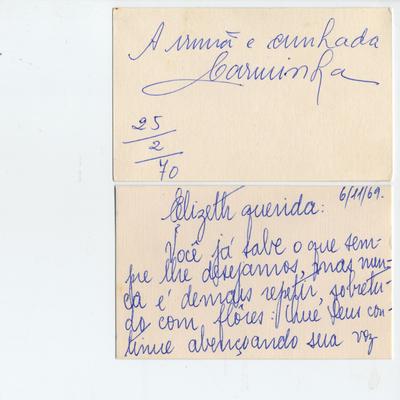 A irmã e cunhada
Carminha
25
2
70
6/11/69.
Elizeth querida:
Você já sabe o que sem-
pre lhe desejamos, mas nun-
ca é demais repetir, sobretu-
do com flôres: que Deus con-
tinue abençoando sua voz